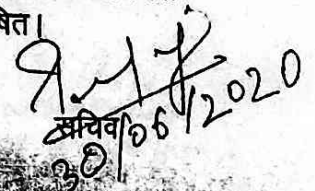 षित।
सचिव
30/06/2020